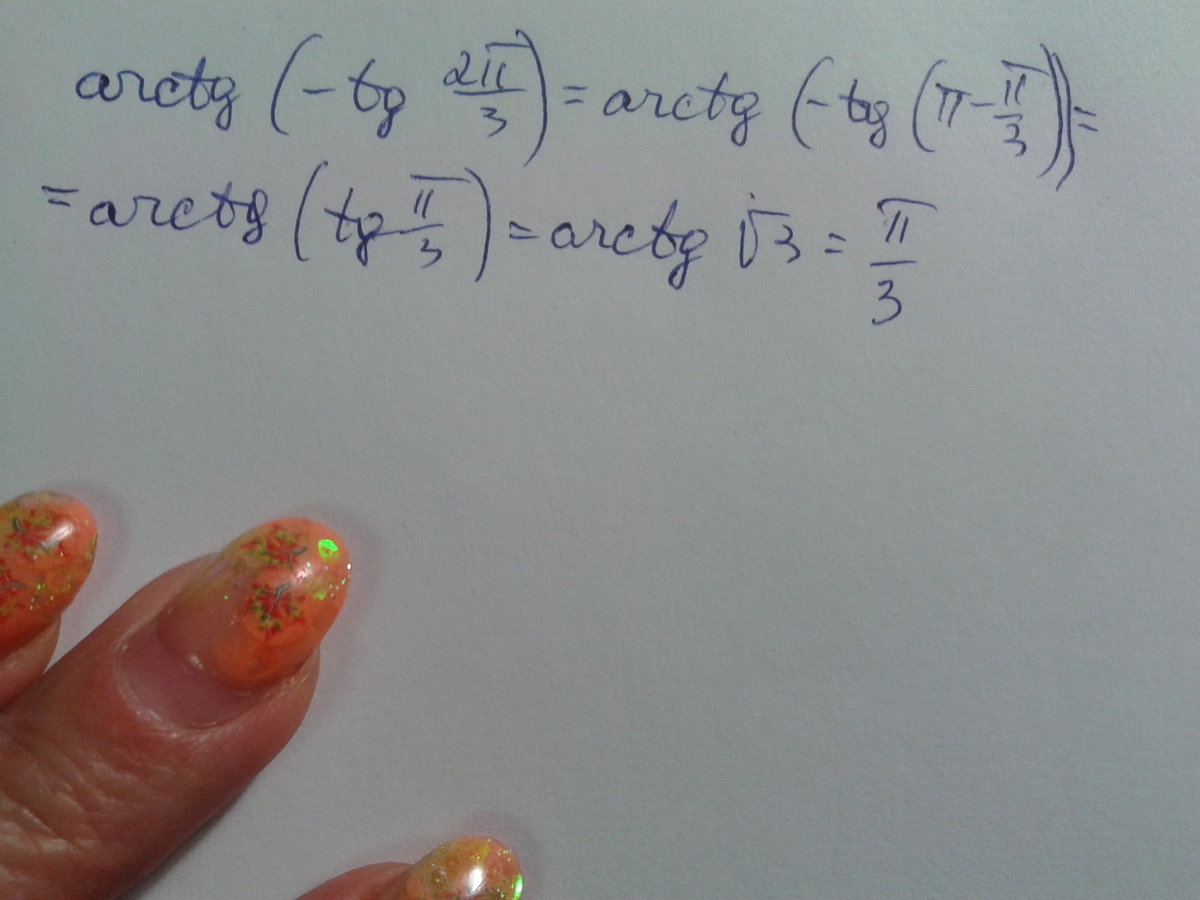 arctg (-tg 2π/3) = arctg (-tg (π - π/3)) =
= arctg (tg π/3) = arctg √3 = π/3